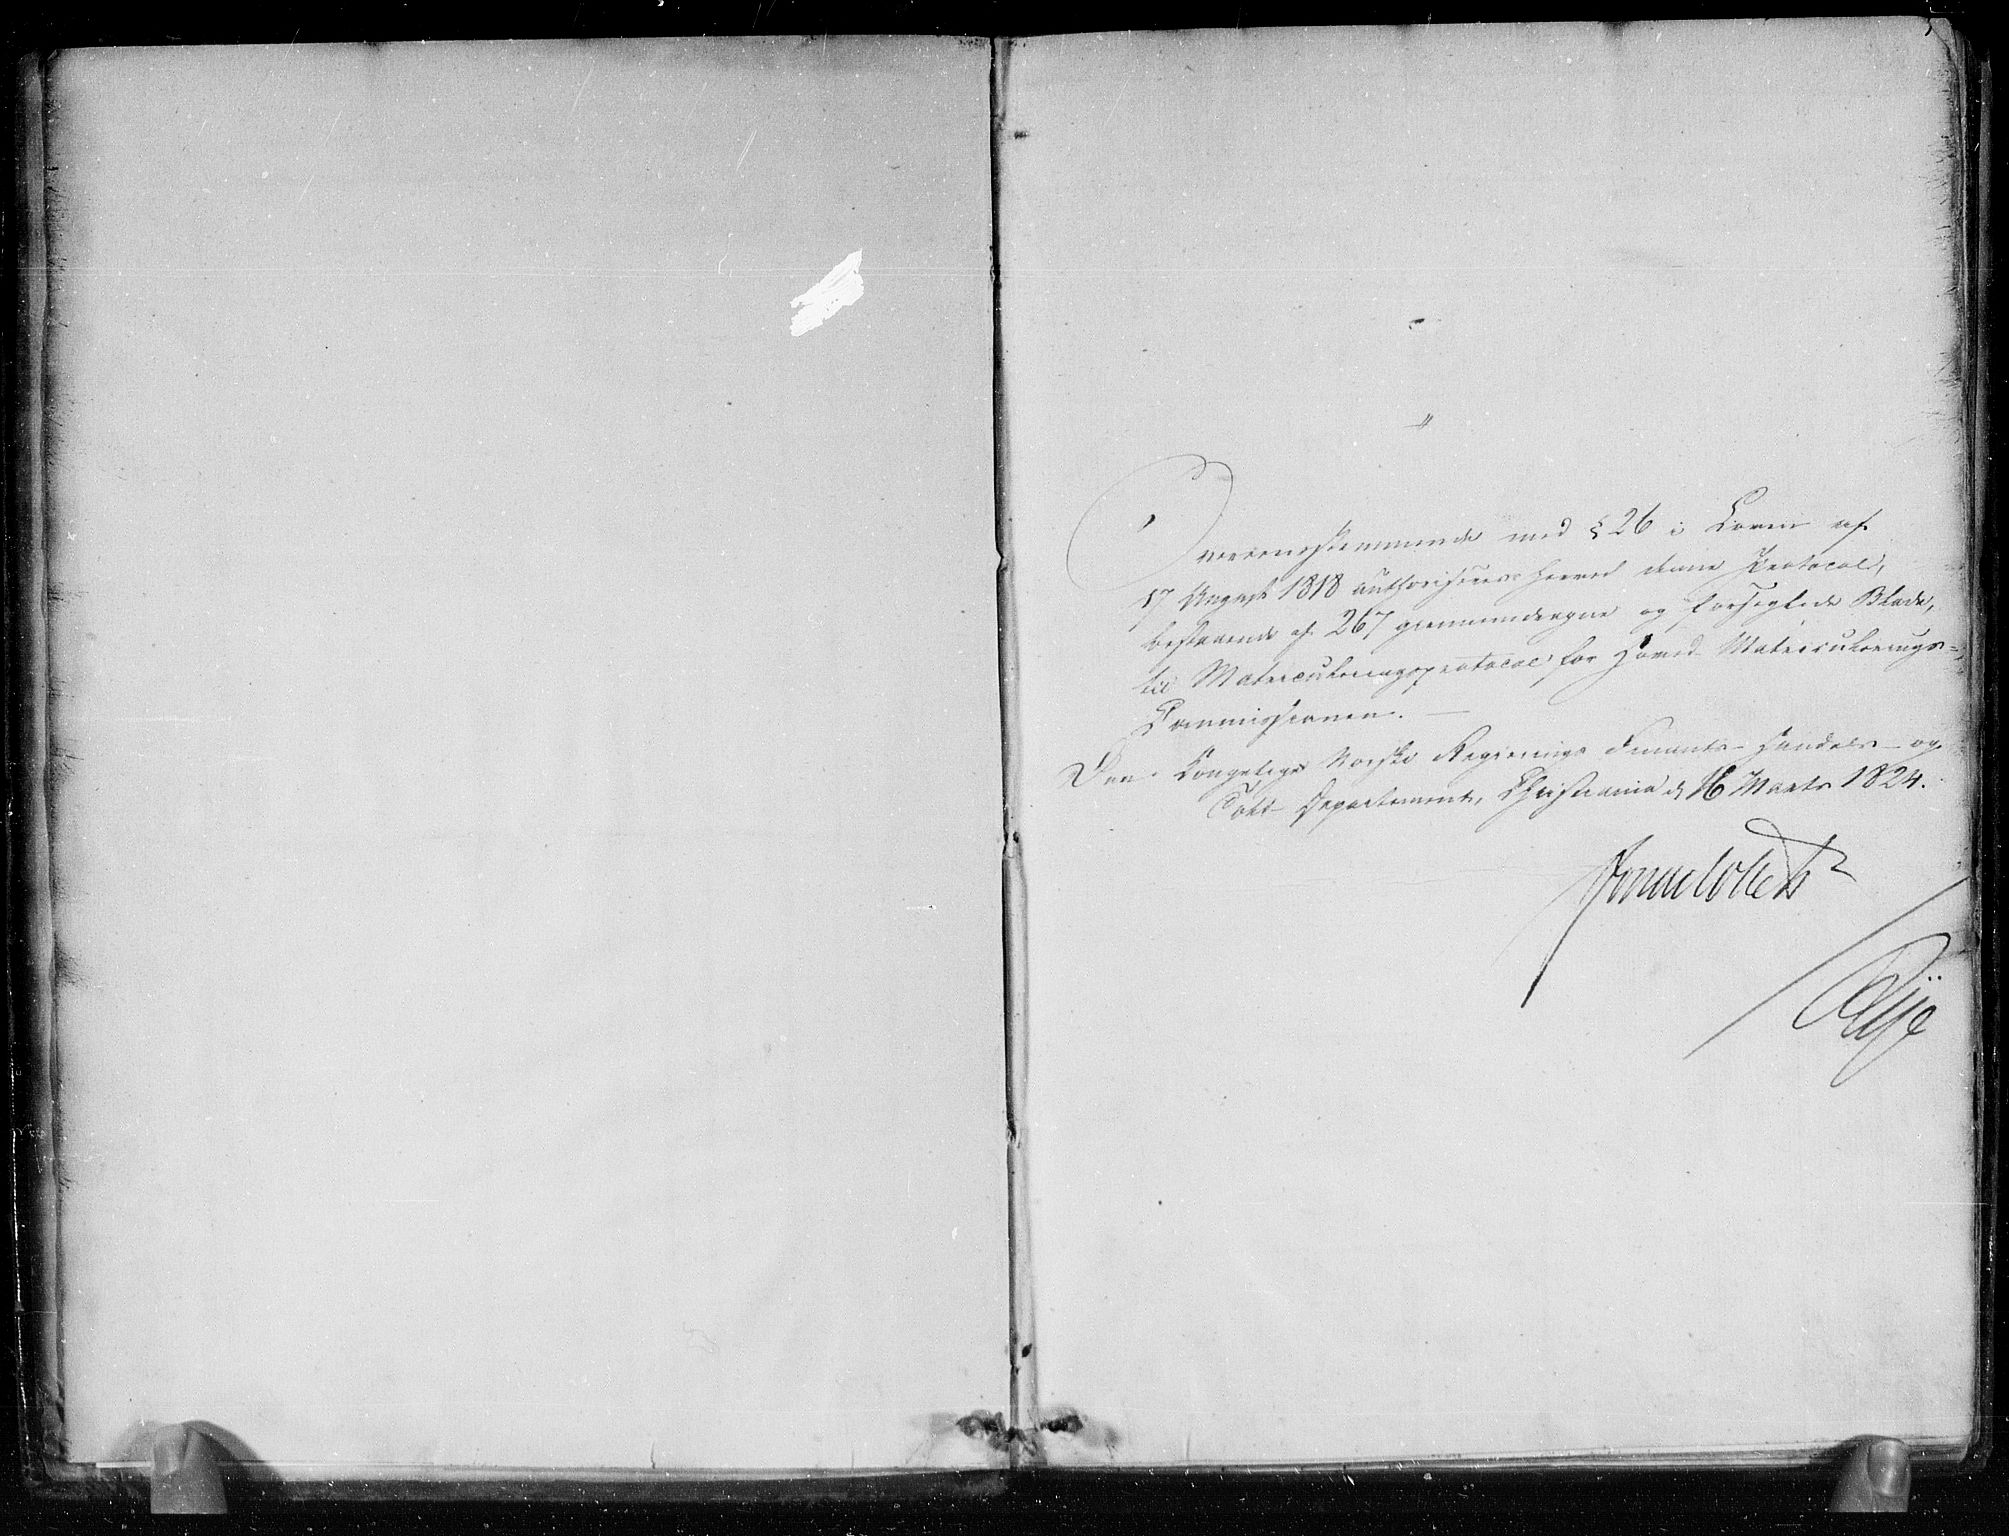 Overeensstemmende med § 26 i Loven af
17 August 1818 authoriseres herved denne Protocol,
bestaaende af 267 giennemdragne og forseglede Blade,
til Matriculeringsprotocol for Hoved-Matriculerings-
Commissionen. —
Den Kongelige Norske Regierings Finants- Handels- og
Told- Departement, Christiania d. 16 Marts 1824.
Jonas Collett